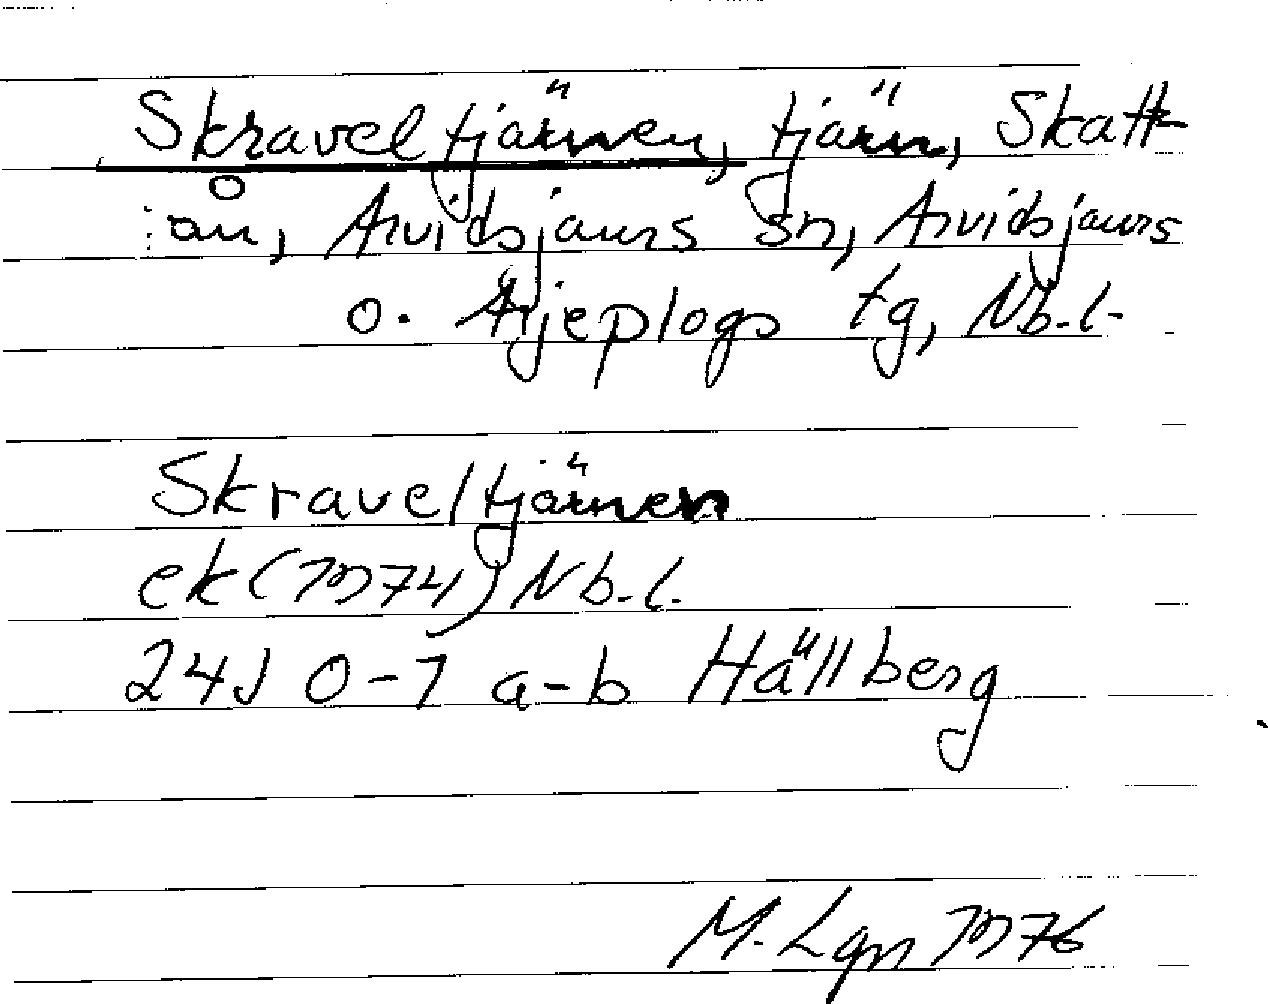 Skraveltjärnen, tjärn, Skatt-
ån, Arvidsjaurs sn, Arvidsjaurs
o. Arjeplogs tg, Nb.l.
Skraveltjärnen
ek (1974) Nb.l.
24J 0-1 a-b Hällberg
M. Lgn 1976